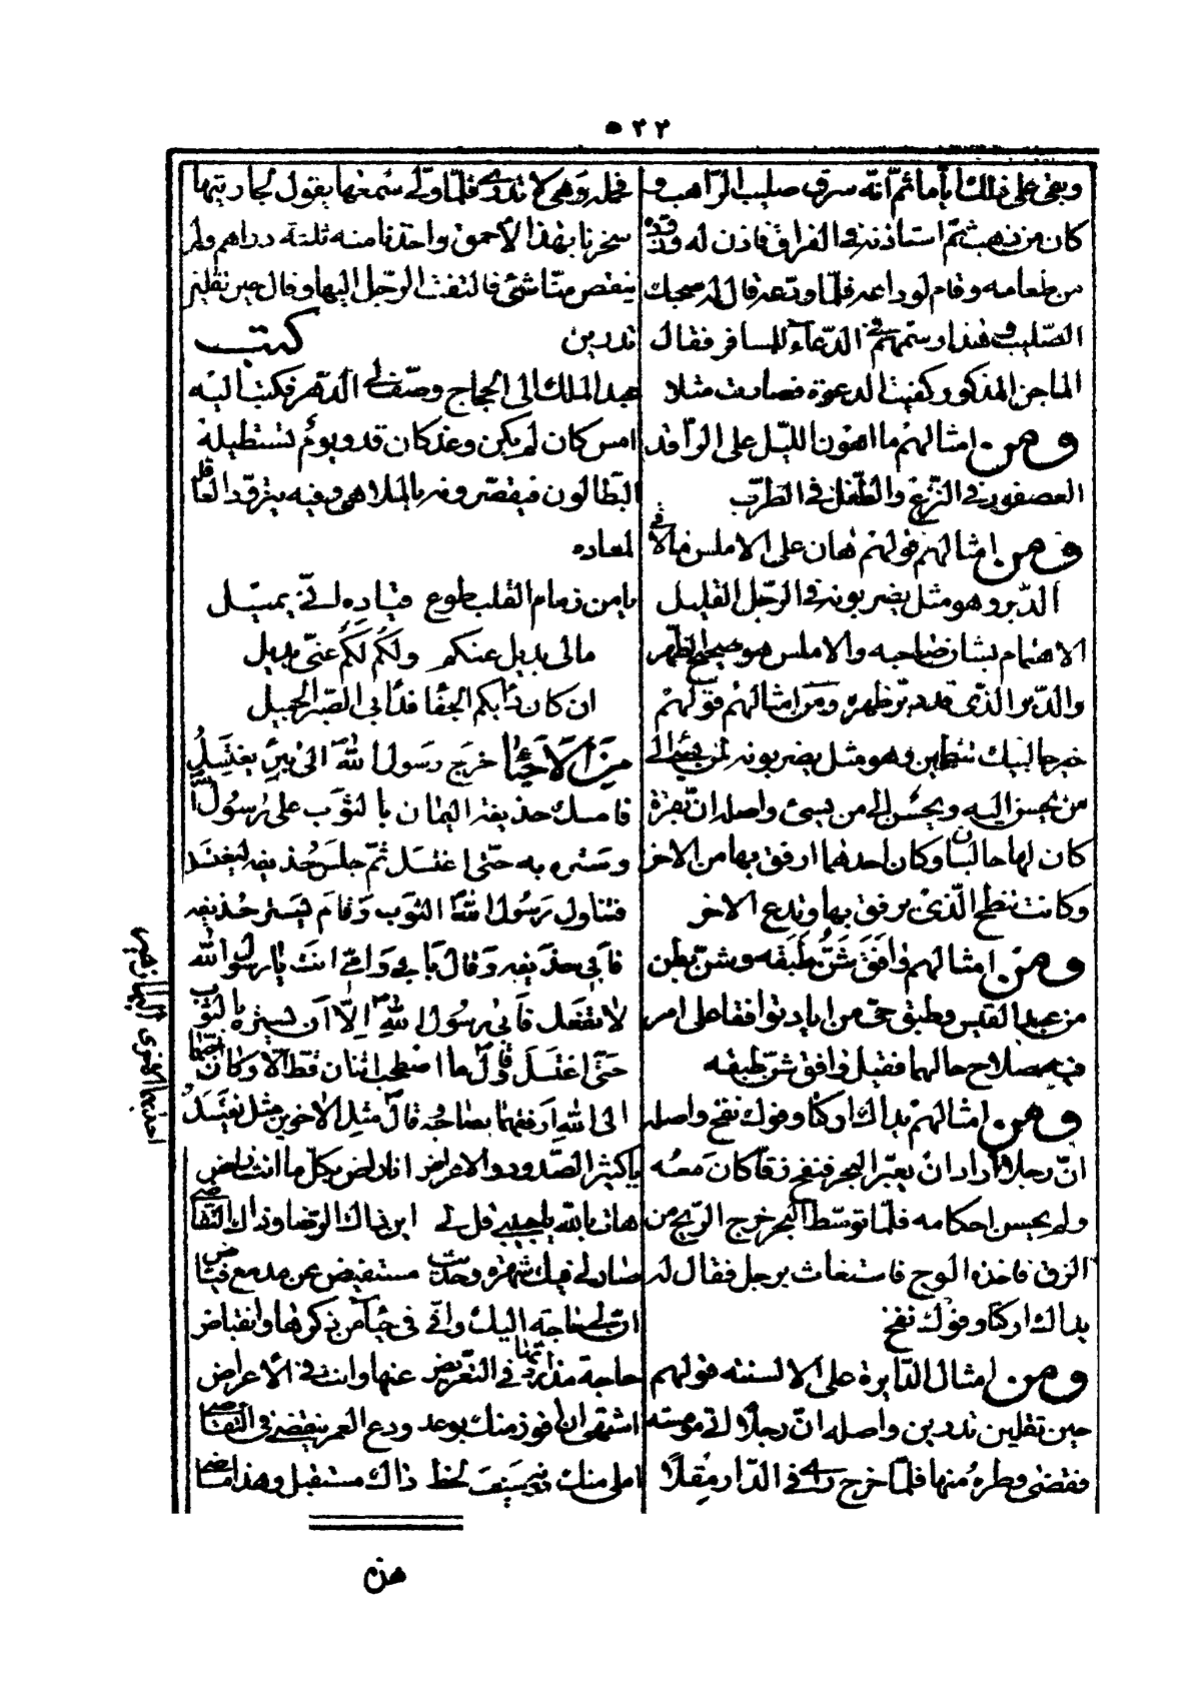 ٥٢٢
وبقى على ذلك اياما ثم انه سرق صليب الراهب و
كان من ذهب ثم استاذنه فى الفراق فاذن له وزوده
من طعامه وقام لوداعه فلما ودعه قال له صحبك
الصليب وهذا رسمهم فى الدعاء للمسافر فقال
الماجن المذكور كفيت الدعوة فصارت مثلا
ومن امثالهم ما اهون الليل على الراقد
العصفور فى النزع والطفل فى الطرب
ومن امثالهم قولهم هان على الاملس ما لاقى
الدبر وهو مثل يضربونه فى الرجل القليل
الاهتمام بشان صاحبه والاملس هو صحيح الظهر
والدبر الذى قد دبر ظهره ومن امثالهم قولهم
خير حالبيك تنطحين وهو مثل يضربونه لمن يسئ الى
من يحسن اليه ويحسن الى من يسئ واصله ان بقرة
كان لها حالبان وكان احدهما ارفق بها من الاخر
وكانت تنطح الذى يرفق بها وتدع الاخر
ومن امثالهم وافق شن طبقه وشن بطن
من عبد القيس وطبق حى من اياد توافقا على امر
فيه صلاح حالهما فقيل وافق شن طبقه
ومن امثالهم يداك اوكتا وفوك نفخ واصله
ان رجلا اراد ان يعبر البحر فنفخ زقا كان معه
ولم يحسن احكامه فلما توسط البحر خرج الريح من
الزق فاخذه الموج فاستغاث برجل فقال له
يداك اوكتا وفوك نفخ
ومن امثال الدايرة على الالسنة قولهم
حين تقلين تدرين واصله ان رجلا اتى مومسه
فقضى وطره منها فلما خرج راى فى الدار مقلا
فحمله وهى لا تدرى فلما ولى سمعها يقول لجارتها
سخرنا بهذا الاحمق واخذنا منه ثلثة دراهم ولم
ينقص منا شئ فالتفت الرجل اليها وقال حين تقلين
تدرين كتب
عبد الملك الى الحجاج وصف لى الدهر فكتب اليه
امس كان لم يكن وغد كان قد ويوم تستطيله
البطالون فيقصرونه بالملاهى وفيه يتزود العاقل
لمعاده
يا من زمام القلب طوع قياده انى يميل
مالى بديل عنكم ولكم لكم عنى بديل
ان كان دأبكم الجفا فدأبى الصبر الجميل
من الاحياء خرج رسول الله الى بئر يغتسل
فامسك حذيفة اليمان بالثوب على رسول الله
وستره به حتى اغتسل ثم جلس حذيفه ليغتسل
فتناول رسول الله الثوب وقام ليستر حذيفه
فابى حذيفه وقال بابى وامى انت يا رسول الله
لا تفعل فابى رسول الله الا ان يستره بالثوب
حتى اغتسل وقال ما اصطحب اثنان قط الا وكان احبهما
الى الله ارفقهما بصاحبه قال مثل الاخوين مثل تغتسل
يا كثير الصدود والاعراض انا راض بكل ما انت راض
هات بالله يا حبيبى قل لى اين ذاك الرضا وذاك التقاضى
صار لى فيك شهرة وحديث مستفيض من مدمع فياض
ان لى حاجة اليك وانى فى حياء من ذكرها وانقباض
حاجة مذ اردتها فى التعريض عنها وانت فى الاعراض
اشتهى ان افوز منك بوعد ودع العمر ينقضى فى التقاضى
املى منك فيه سيف لحظ ذاك مستقبل وهذا ماضى
هن